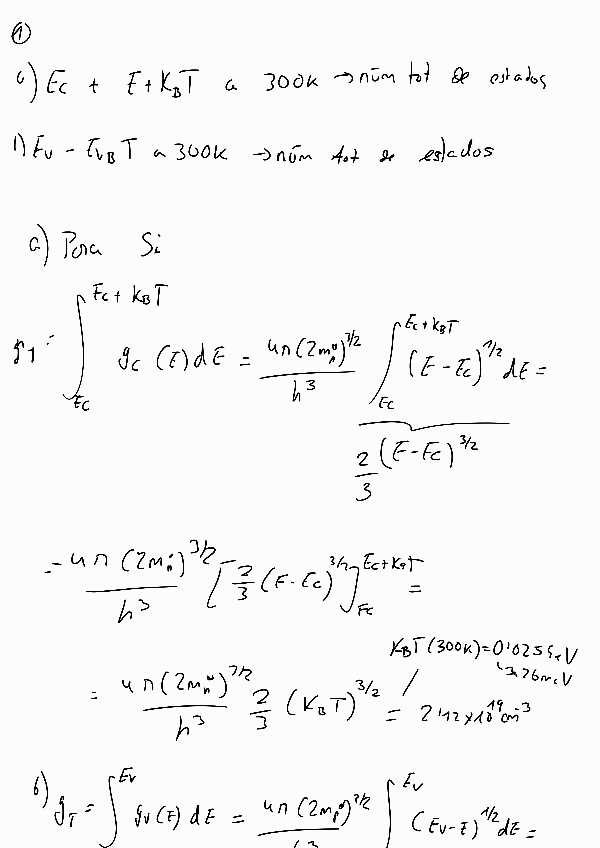 ①
a) Ec + E+K_BT a 300K → núm tot de estados
b) Ev - E_{VB}T a 300K → núm tot de estados
a) Para Si
g_T = ∫_{Ec}^{Ec + K_BT} g_c (E) dE = 4π(2m_n^*)^{3/2} / h^3 ∫_{Ec}^{Ec + K_BT} (E - Ec)^{1/2} dE =
2/3 (E - Ec)^{3/2}
= 4π(2m_n^*)^{3/2} / h^3 [2/3 (E - Ec)^{3/2}]_{Ec}^{Ec + K_BT} =
K_BT (300K) = 0'025 eV
26 meV
= 4π(2m_n^*)^{3/2} / h^3 2/3 (K_BT)^{3/2} = 2'12 x 10^{19} cm^{-3}
b) g_T = ∫^{Ev} g_v(E) dE = 4π(2m_p^*)^{3/2} ∫^{Ev} (Ev - E)^{1/2} dE =